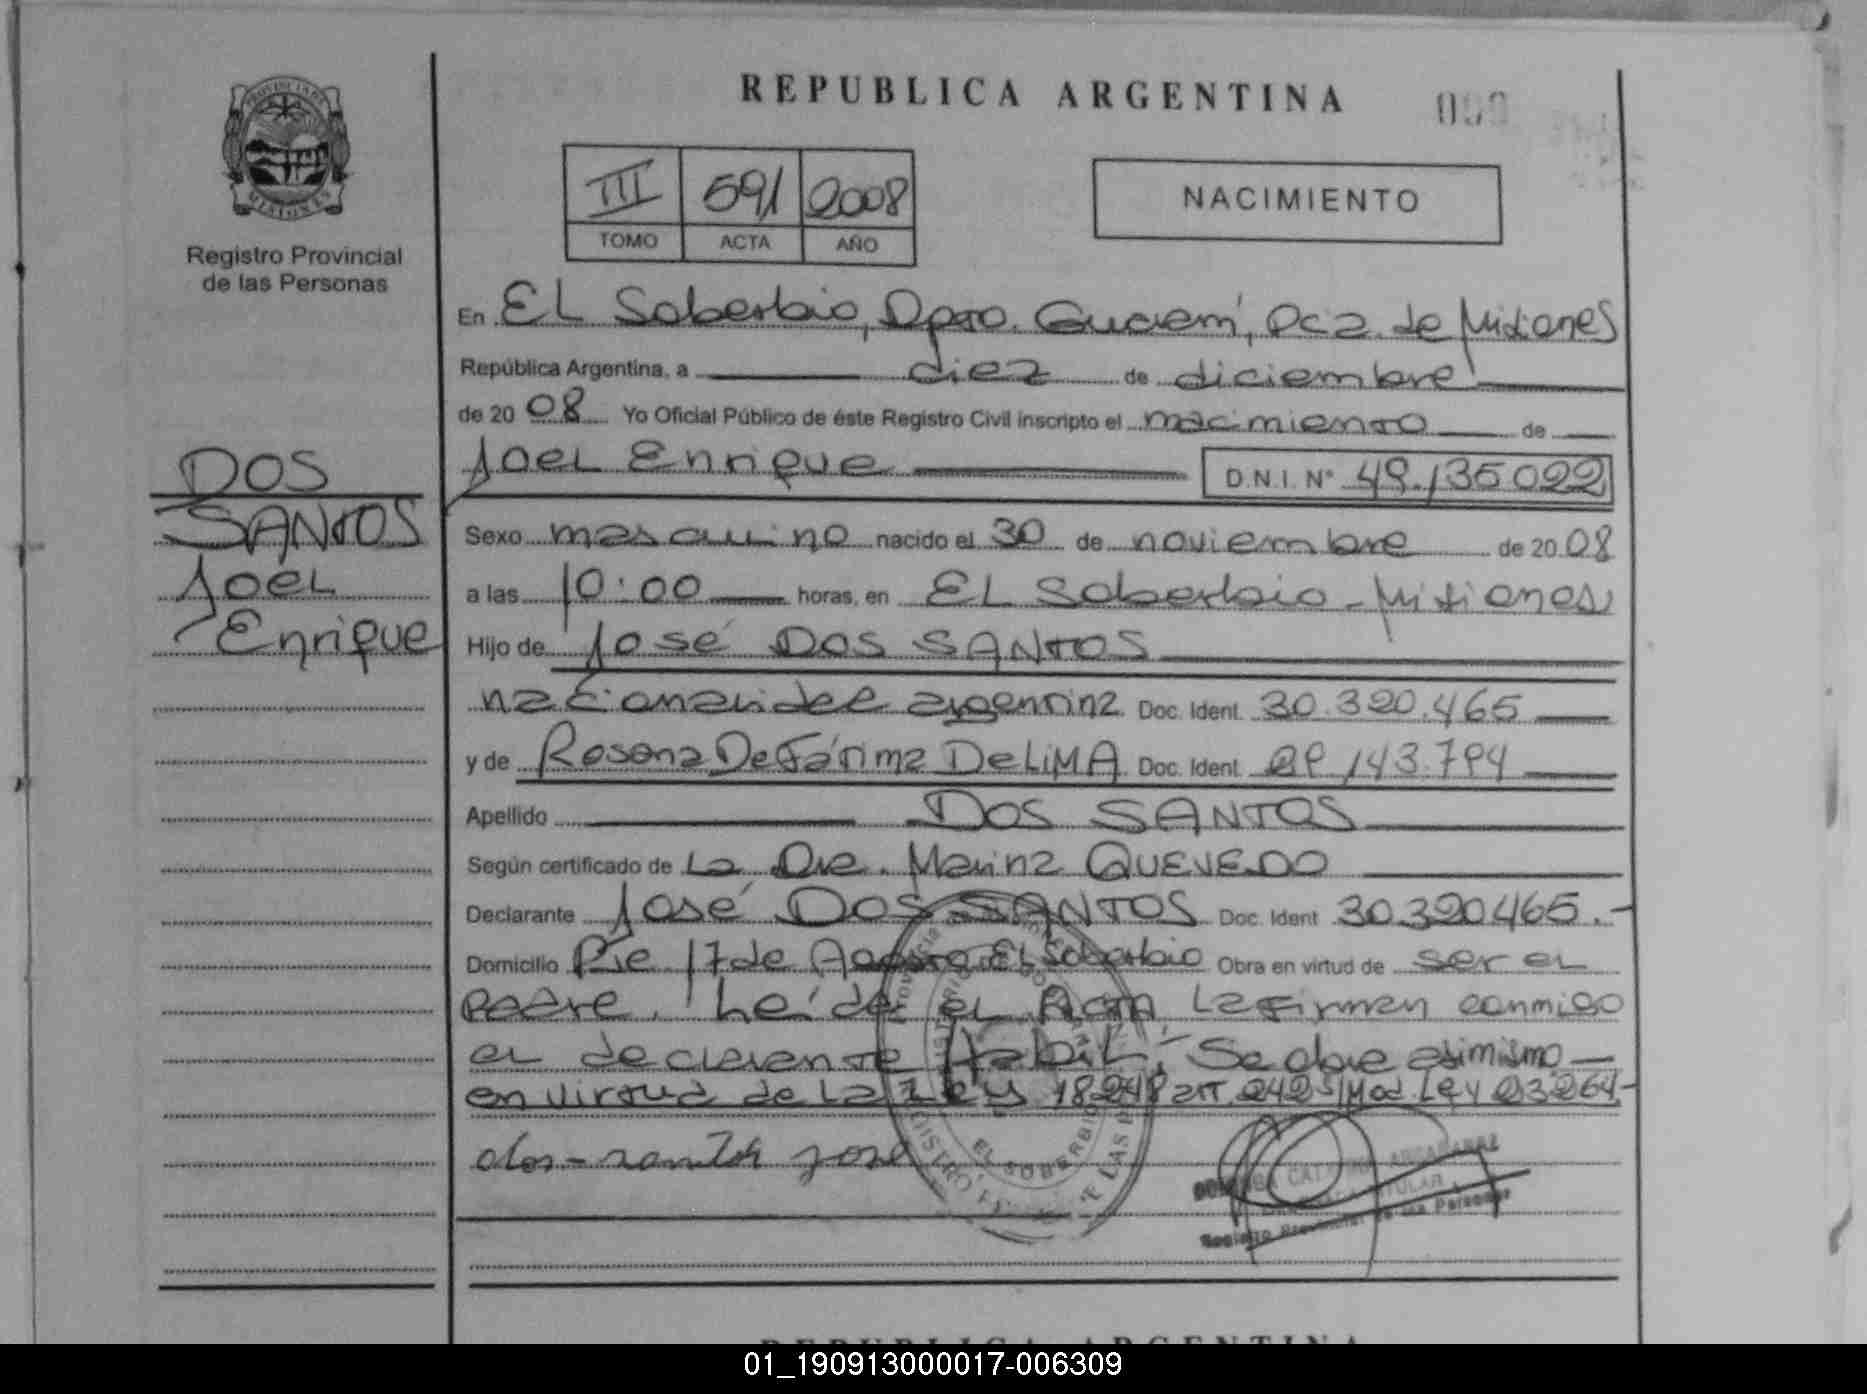 REPUBLICA ARGENTINA
PROVINCIA DE
MISIONES
Registro Provincial
de las Personas
III 591 2008
TOMO ACTA AÑO
NACIMIENTO
En EL Soberbio, Dpto. Guaraní, Pcia. de Misiones
República Argentina, a diez de diciembre
de 2008 Yo Oficial Público de éste Registro Civil inscripto el nacimiento de
Joel Enrique D.N.I. Nº 49.135022
DOS
SANTOS
Joel
Enrique
Sexo masculino nacido el 30 de noviembre de 2008
a las 10:00 horas, en EL Soberbio - Misiones
Hijo de José DOS SANTOS
nacionalidad argentina Doc. Ident. 30.320.465
y de Rosana De Fátima De LiMA Doc. Ident.
Apellido DOS SANTOS
Según certificado de La Dra. Marina QUEVEDO
Declarante José DOS SANTOS Doc. Ident 30.320465.-
Domicilio Pje 17 de Agosto El Soberbio Obra en virtud de ser el
padre. Leída el Acta La firman conmigo
el declarante Habil, Se obre asimismo
en virtud de La Ley 18248 Mod. Ley 23264-
dos-santos josé
EL SOBERBIO
Registro Provincial de las Personas
REPUBLICA ARGENTINA
01_190913000017-006309